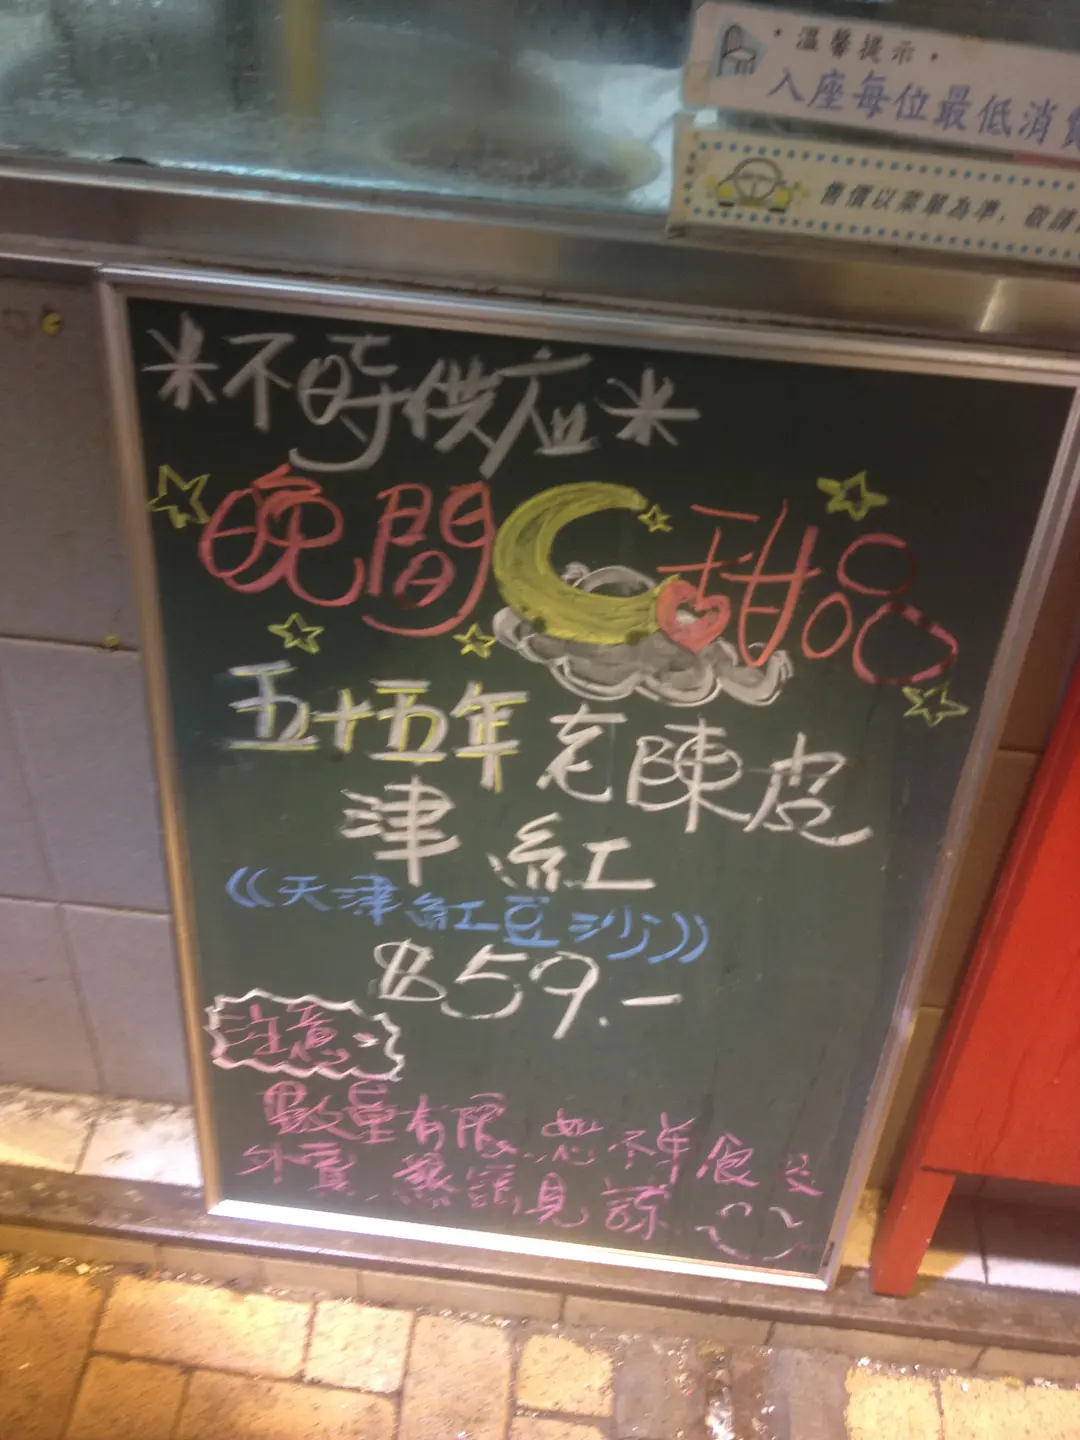 ·溫馨提示·
入座每位最低消費
售價以菜單為準，敬請
*不時供應*
晚間 甜品
五十五年老陳皮
津 紅
《天津紅豆沙》
$59.-
注意
數量有限，恕不半份及
外賣，敬請見諒